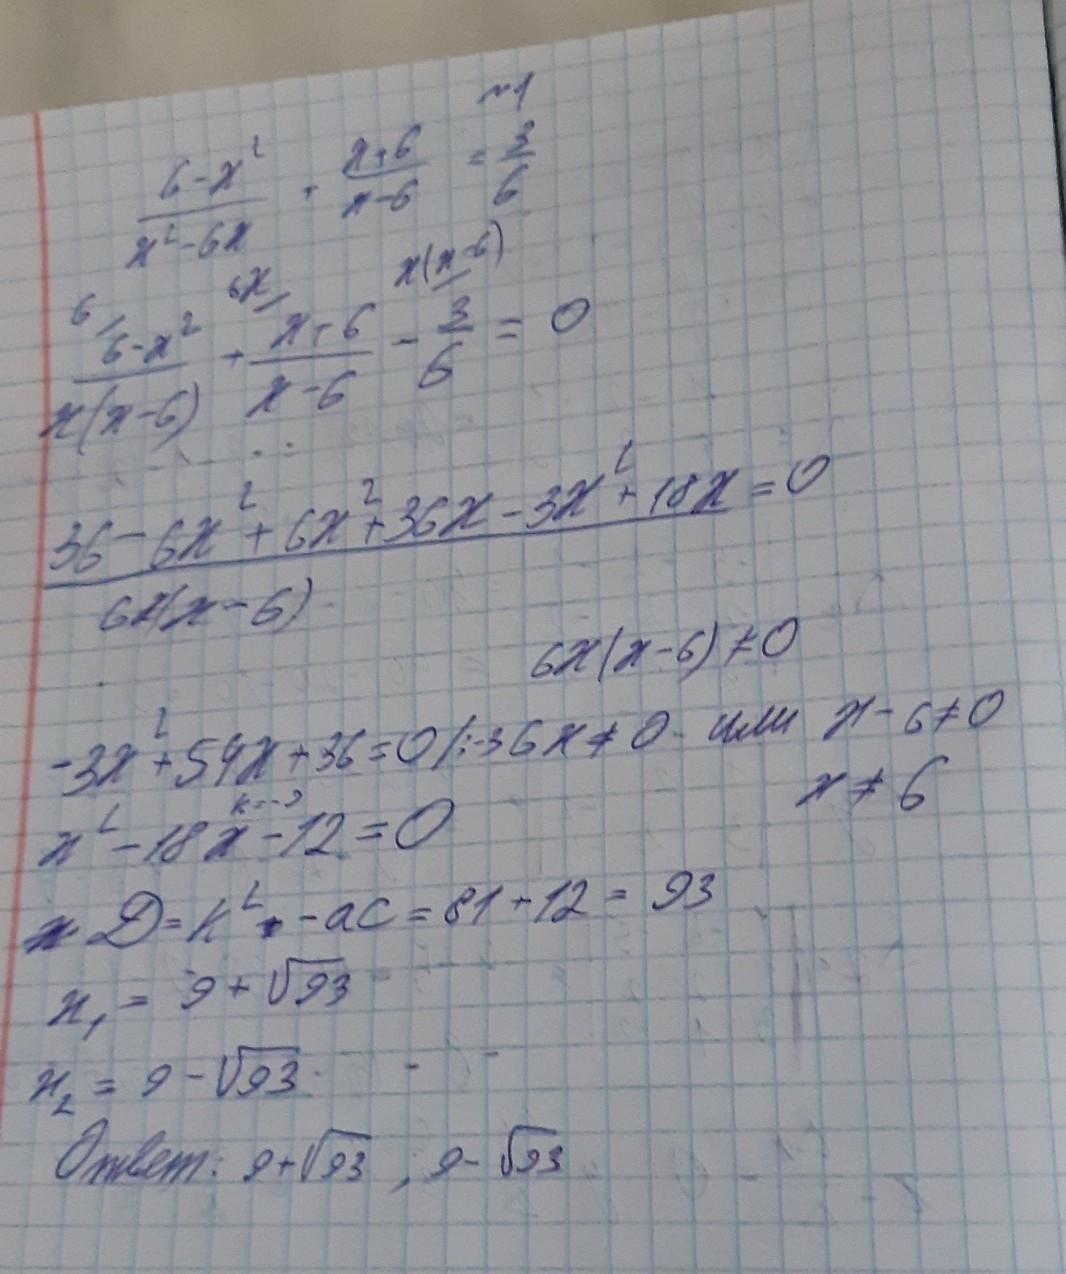 №1
(6-x²)/(x²-6x) + (x+6)/(x-6) = 3/6
6 6x x(x-6)
(6-x²)/(x(x-6)) + (x+6)/(x-6) - 3/6 = 0
(36-6x²+6x²+36x-3x²+18x)/(6x(x-6)) = 0
6x(x-6)≠0
-3x²+54x+36=0 |:-3 6x≠0 или x-6≠0
x≠6
k=-9
x²-18x-12=0
D=k²-ac=81+12=93
x₁=9+√93
x₂=9-√93
Ответ: 9+√93, 9-√93